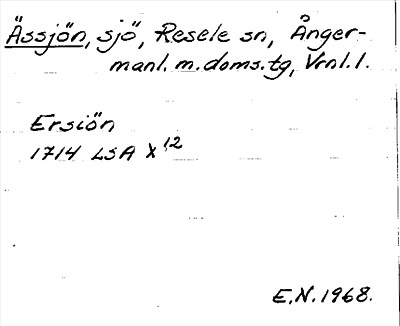 Ässjön, sjö, Resele sn, Ånger-
manl. m. doms.tg, Vrnl. l.
Ersiön
1714 LSA X 12
E.N. 1968.